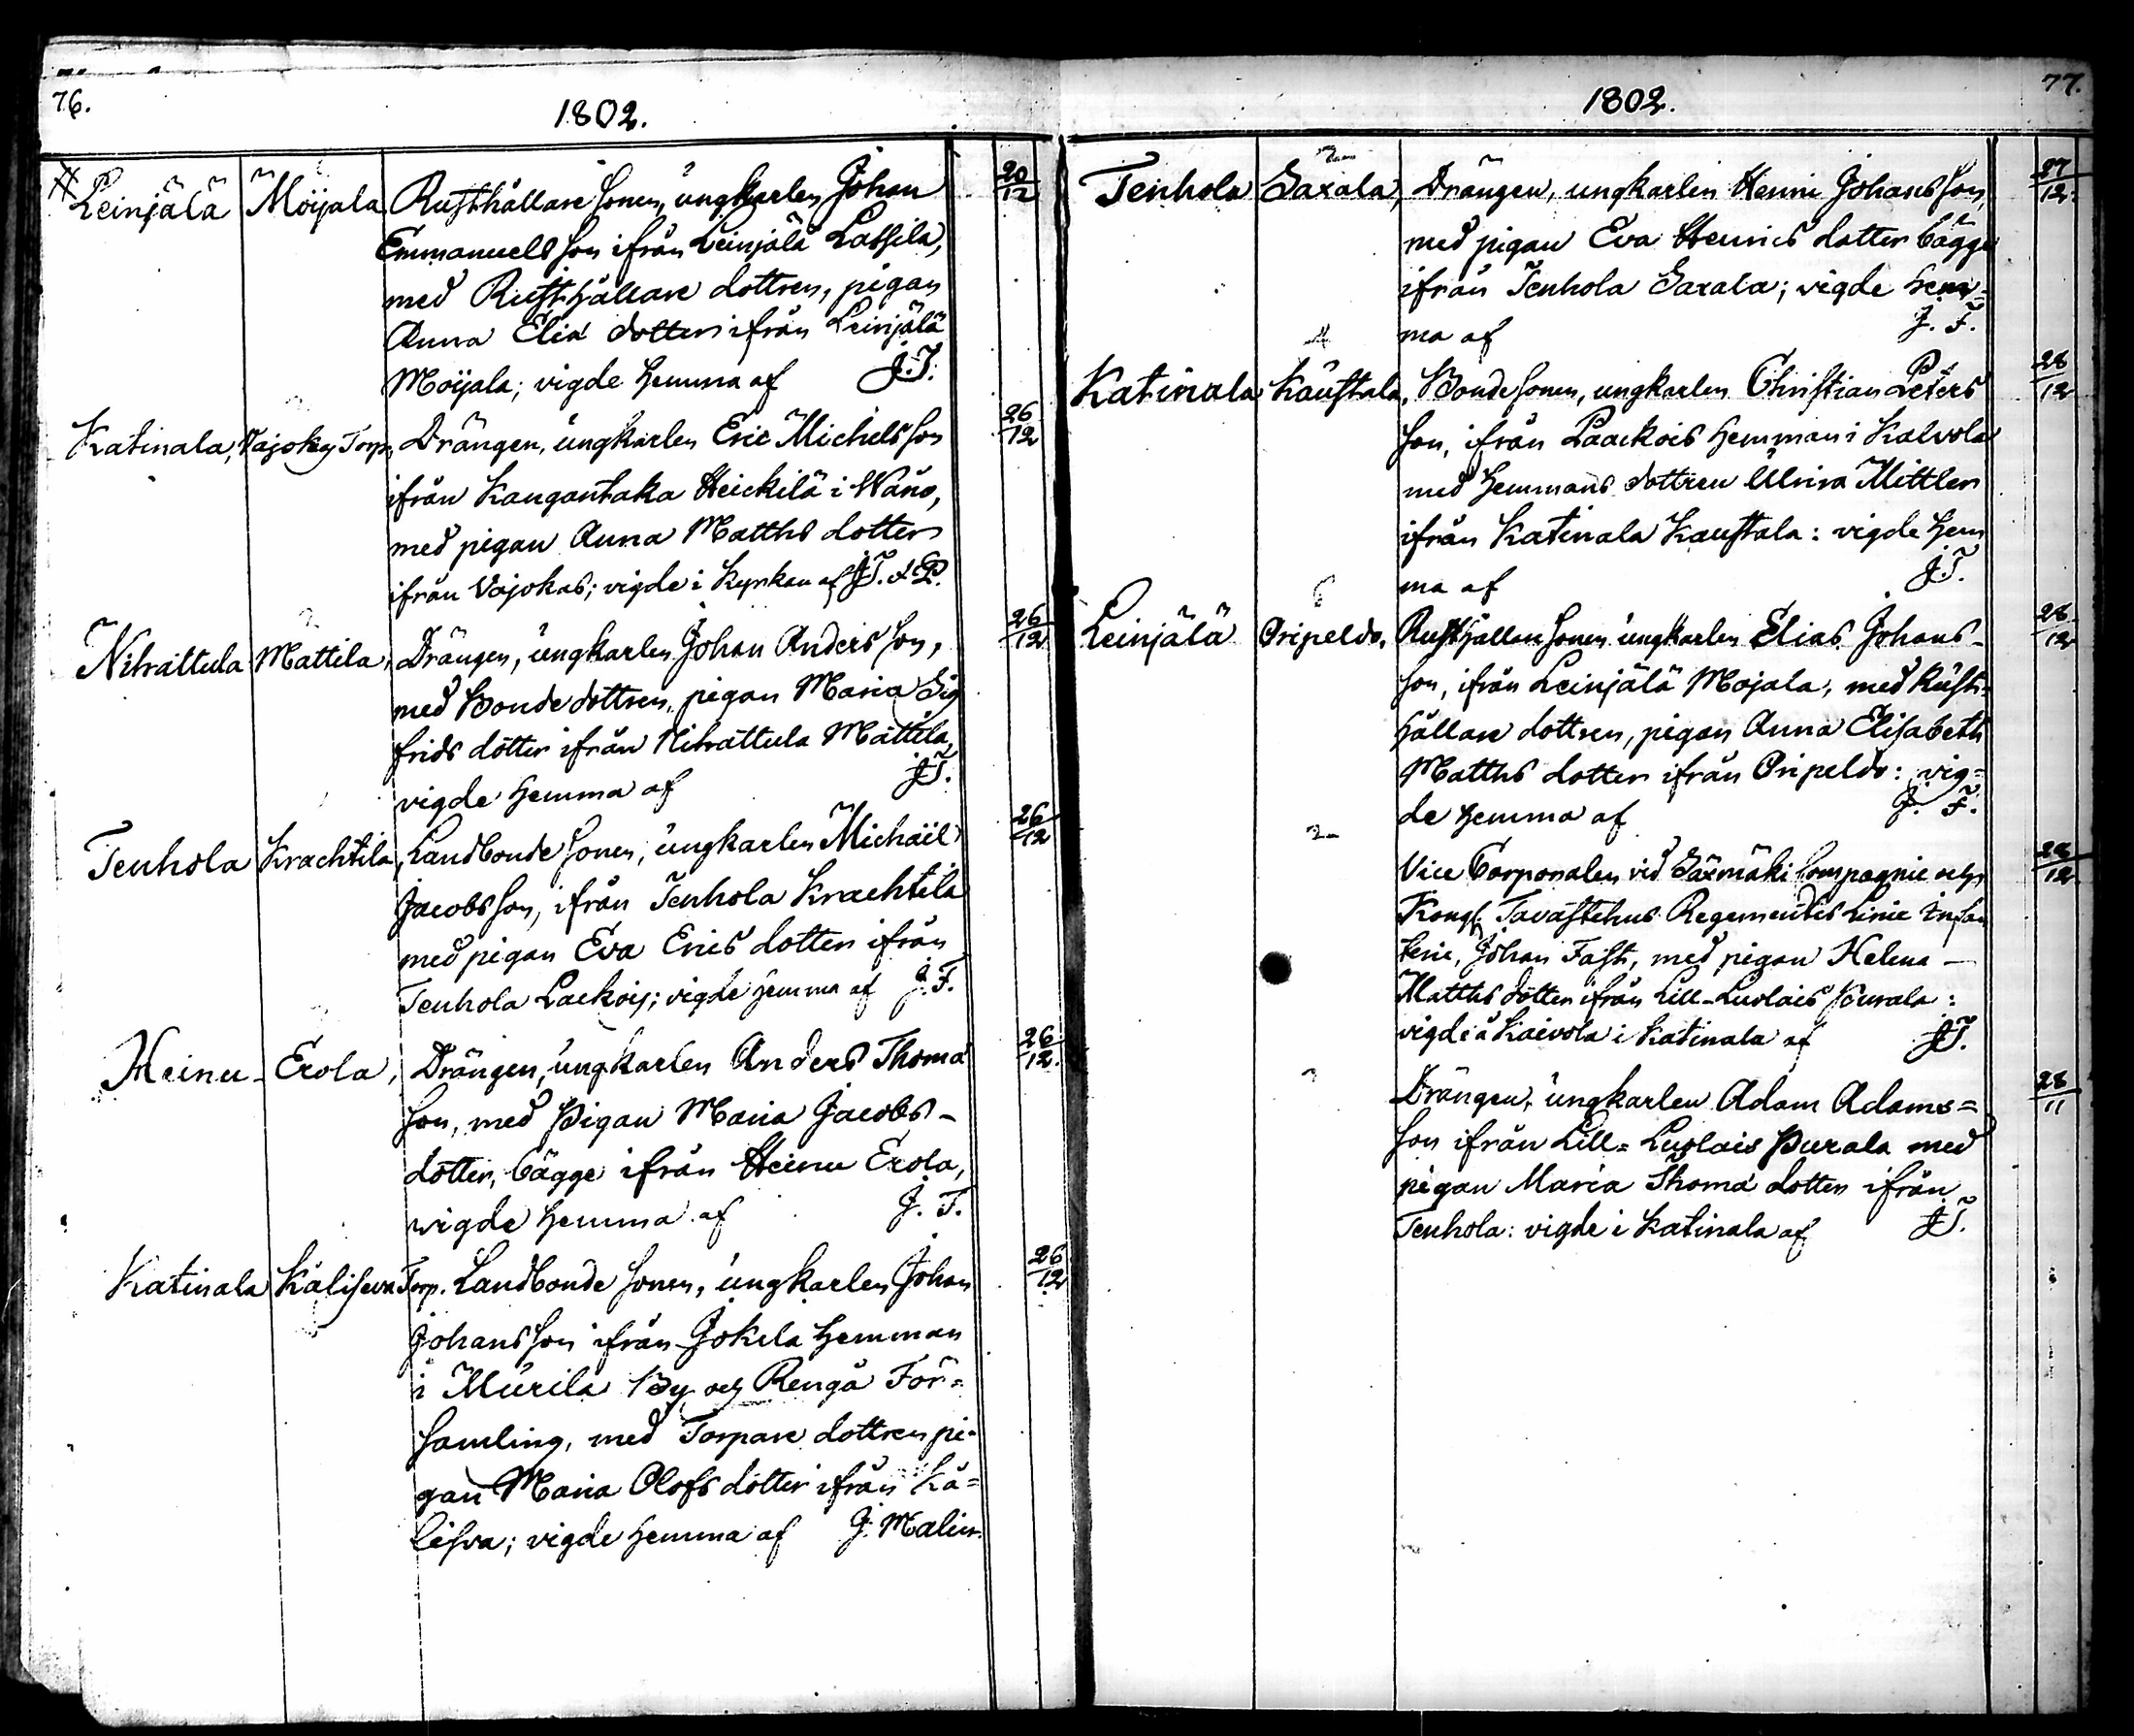 76.
1802.
Leinjälä Moijala Rusthållare sonen, ungkarlen Johan 20/12
Emmanuels son ifrån Leinjälä Lassila,
med Rusthållare dottren, pigan
Anna Eliæ dotter ifrån Leinjälä
Moijala; vigde hemma af J.T.
Katinala, Vajokas Torp, Drängen, ungkarlen Eric Michels son 26/12
ifrån Kangantaka Heickilä i Wåno,
med pigan Anna Matths dotter
ifrån Vajokas; vigde i Kyrkan af J.T.
Nihattula Mattila, Drängen, ungkarlen Johan Anders son, 26/12
med Bonde dottren, pigan Maria Sig
frids dotter ifrån Nihattula Mattila
vigde hemma af J.T.
Tenhola Krachtila, Landbonde sonen, ungkarlen Michaël 26/12
Jacobs son, ifrån Tenhola Krachtila
med pigan Eva Erics dotter ifrån
Tenhola Lackois; vigde hemma af J.T.
Heinu- Erola, Drängen, ungkarlen Anders Thomæ 26/12.
son, med Pigan Maria Jacobs-
dotter, bägge ifrån Heinu Erola,
vigde hemma af J. T.
Katinala Käliseva Torp. Landbonde sonen, ungkarlen Johan 26/12
Johans son ifrån Jokela hemman
i Murila By och Rengå För=
samling, med Torpare dottren pi-
gan Maria Olofs dotter ifrån Kä=
lisva; vigde hemma af J. Malin.
77.
1802.
Tenhola Saxala, Drängen, ungkarlen Henric Johans son, 27/12.
med pigan Eva Henrics dotter bägge
ifrån Tenhola Saxala; vigde hem=
ma af J. T.
Katinala Kaustala, Bonde sonen, ungkarlen Christian Peters 28/12
son, ifrån Laackois hemman i Kalvola
med hemmans dottren Ulrica Mittler
ifrån Katinala Kaustala: vigde hem
ma af J.T.
Leinjälä Oripeldo, Rusthållare sonen ungkarlen Elias Johans- 28/12
son, ifrån Leinjälä Mojala, med Rust-
hållare dottren, pigan Anna Elisabeth
Matths dotter ifrån Oripeldo: vig=
de hemma af J. T.
Vice Corporalen vid Säxmäki Compagnie och 28/12
Kongl. Tavastehus Regementes Linie Infan
terie, Johan Fast, med pigan Helena -
Matths dotter ifrån Lill-Luolais Purala:
vigde å Kaivola i Katinala af J.T.
Drängen, ungkarlen Adam Adams= 28/11
son ifrån Lill=Luolais Purala med
pigan Maria Thomæ dotter ifrån
Tenhola: vigde i Katinala af J.T.